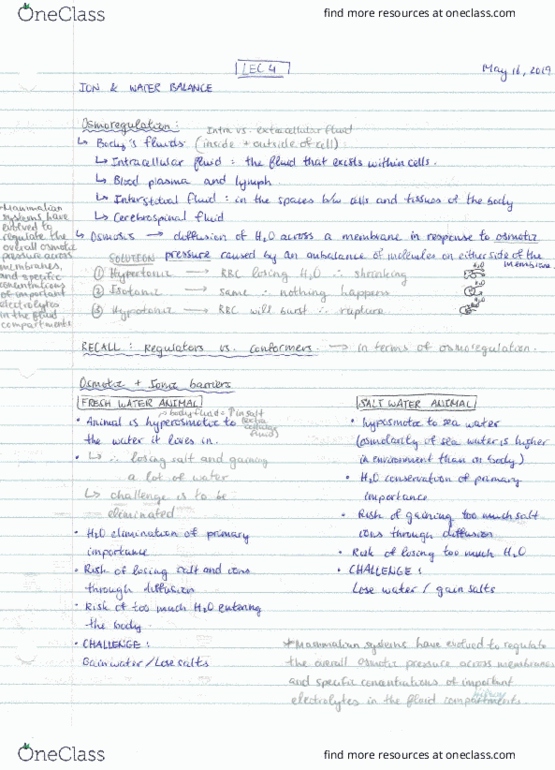 OneClass
find more resources at oneclass.com
LEC 4
May 16, 2019
ION & WATER BALANCE
Osmoregulation:
Intra vs. extracellular fluid
↳ Body's fluids (inside + outside of cell)
↳ Intracellular fluid : the fluid that exists within cells.
↳ Blood plasma and lymph
↳ Interstitial fluid : in the spaces b/w cells and tissues of the body
↳ Cerebrospinal fluid
*Mammalian
systems have
evolved to
regulate the
overall osmotic
pressure across
membranes,
and specific
concentrations
of important
electrolytes
in the fluid
compartments
↳ Osmosis → diffusion of H2O across a membrane in response to osmotic
pressure caused by an imbalance of molecules on either side of the
membrane
SOLUTION
① Hypertonic → RBC losing H2O ∴ shrinking
② Isotonic → same ∴ nothing happens
③ Hypotonic → RBC will burst ∴ rupture
RECALL : Regulators vs. conformers. → in terms of osmoregulation.
Osmotic + Ionic barriers
FRESH WATER ANIMAL
→ body fluid = ↑ in salt
• Animal is hyperosmotic to (extra cellular fluid)
the water it lives in.
• ↳ ∴ losing salt and gaining
a lot of water
↳ challenge is to be
eliminated
• H2O elimination of primary
importance
• Risk of losing salt and ions
through diffusion
• Risk of too much H2O entering
the body.
• CHALLENGE :
Gain water / Lose salts
SALT WATER ANIMAL
• hyposmotic to sea water
(osmolarity of sea water is higher
in environment than or body)
• H2O conservation of primary
importance
• Risk of gaining too much salt
ions through diffusion
• Risk of losing too much H2O
• CHALLENGE :
Lose water / gain salts
*Mammalian systems have evolved to regulate
the overall osmotic pressure across membranes
and specific concentrations of important
electrolytes in the fluid compartments.
OneClass
find more resources at oneclass.com